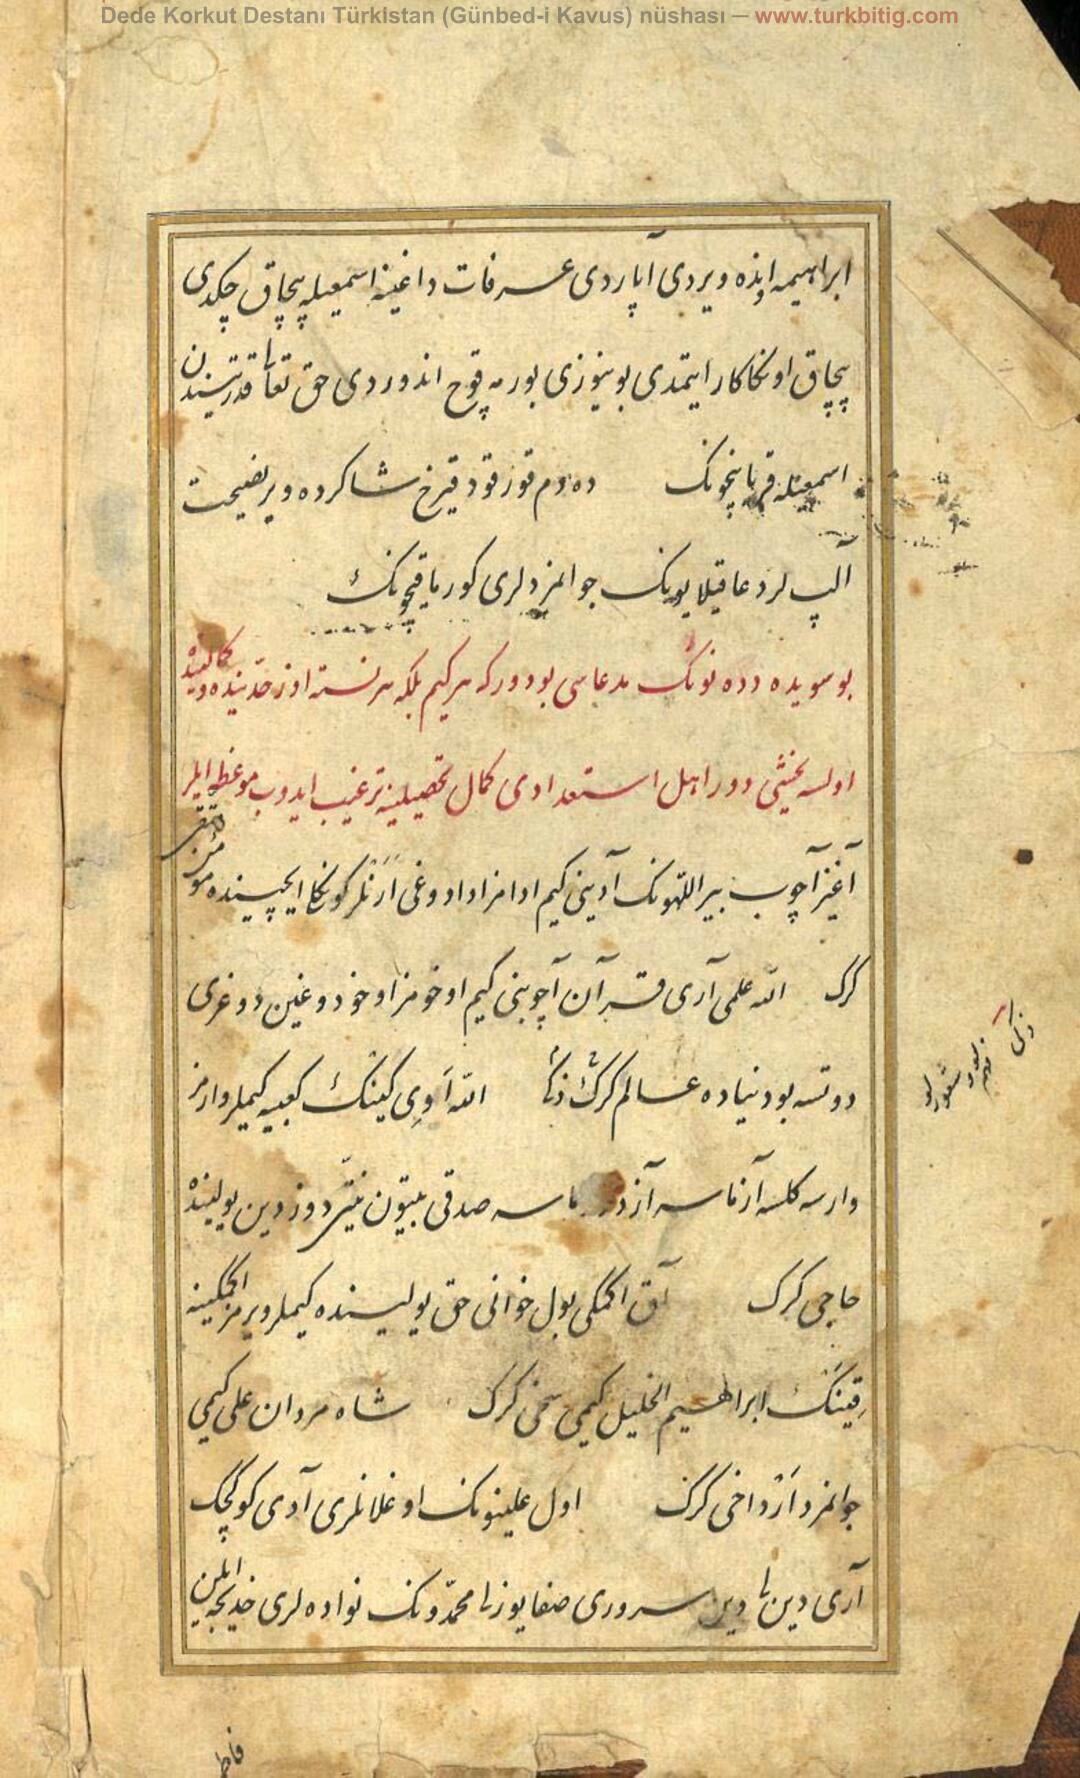 Dede Korkut Destanı Türkistan (Günbed-i Kavus) nüshası — www.turkbitig.com
ابراهیمه ایذه ویردی آپاردی عرفات داغینه اسمعیله پچاق چکدی
پچاق اونکا کار ایتمدی بوینوزی بورمه قوچ اندوردی حق تعالی قدرتیندن
اسمعیله قربانچونک دهدم قورقود قیرخ شاکرده ویر نصیحت
آلپ لر دعا قیلا یورنک جوانمردلری کور یاقیچونک
بو سویده ددهنونک مدعاسی بودور که هر کیم بلکه هر نسته اوز حدّینده و کمالینده
اولسه یخشی دور اهل استعدادی کمال تحصیلینه ترغیب ایدوب موعظه ایلر
آغیز آچوب بیر اللّهونک آدینی کیم ادامز اداد وغی ارنلر کونکا ایچینده مؤمن متقی
کرک الله علمی آری قرآن آچوبنی کیم اوخومز اوخودوغین دوغری
دوتسه بو دنیاده عالم کرک الله اَوِی کینک کعبیه کیملر وارمز
وارسه کلسه آزناسه صدقی بتون نیّتی دوز دین یولینده
حاجی کرک آق اکمکی بول خوانی حق یولینده کیملر ویرمز اکمکینه
قینک ابراهیم الخلیل کیمی سخی کرک شاه مردان علی کیمی
جوانمرد اَرْ داخی کرک اول علینونک اوغلانلری آدی کوکچک
آری دین دین سروری صفا یوزلی محمّدونک نوادهلری خدیجه ایلن
فاطم